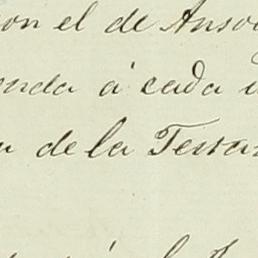 on el de Anso
enda á cada
de la Terra